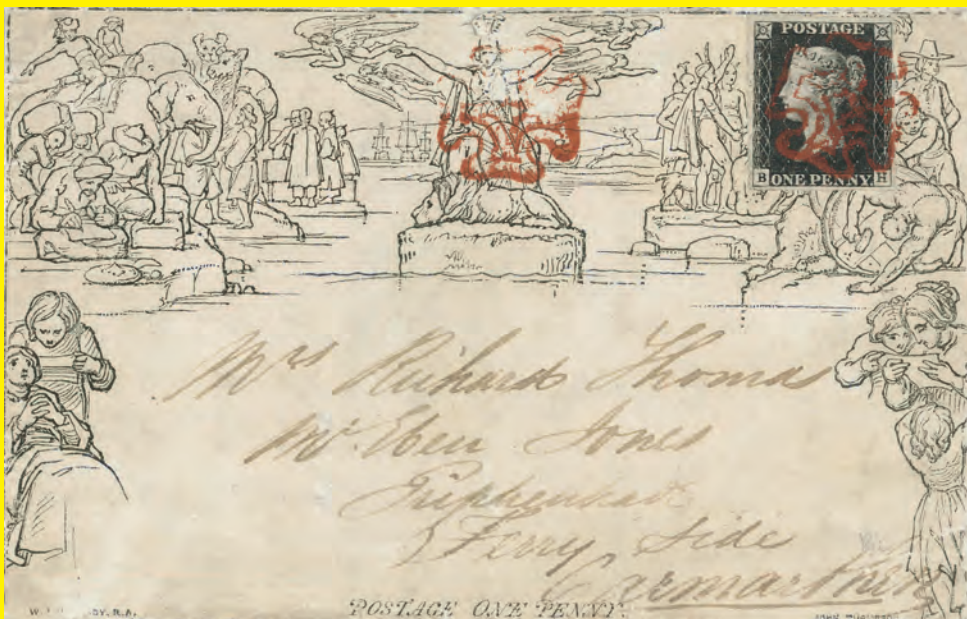 POSTAGE
B H
ONE PENNY
Mrs Richard Thomas
Mr Eben Jones
Ferry Side
Carmarthen
W. R.A.
POSTAGE ONE PENNY.
JOHN